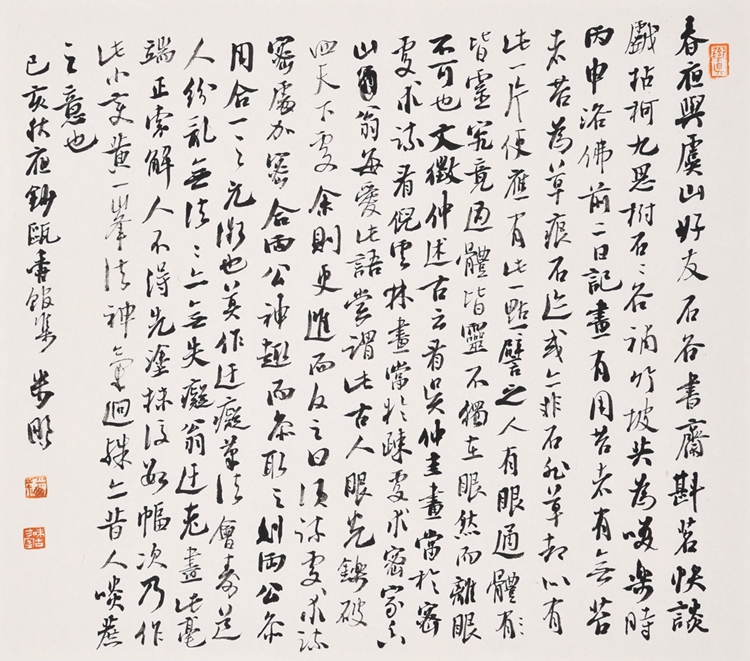 春夜與虞山好友石谷書齋斟茗快談
戲拈柯九思樹石石谷補竹坡共為笑樂時
丙申浴佛前二日記畫有用苔者有無苔
者苔為草痕石跡或亦非石非草却似有
此一片便應有此一點譬之人有眼通體
皆靈究竟通體皆靈不獨在眼然而離眼
不可也文徵仲述古云看吳仲圭畫當於密
處求疏看倪雲林畫當於疏處求密家香
山翁每愛此語嘗謂此古人眼光鑠破
四天下處余則更進而反之曰須疏處求疏
密處加密合兩公神趣而參取之則兩公參
用合一之元微也莫作迂癡筆法會壽道
人紛亂無法法亦無失癡翁迂老畫此毫
端正索解人不得先塗抹後數幅次乃作
此小變黃一峯法神氣迥殊亦昔人啖蔗
之意也
己亥秋夜鈔甌香館集